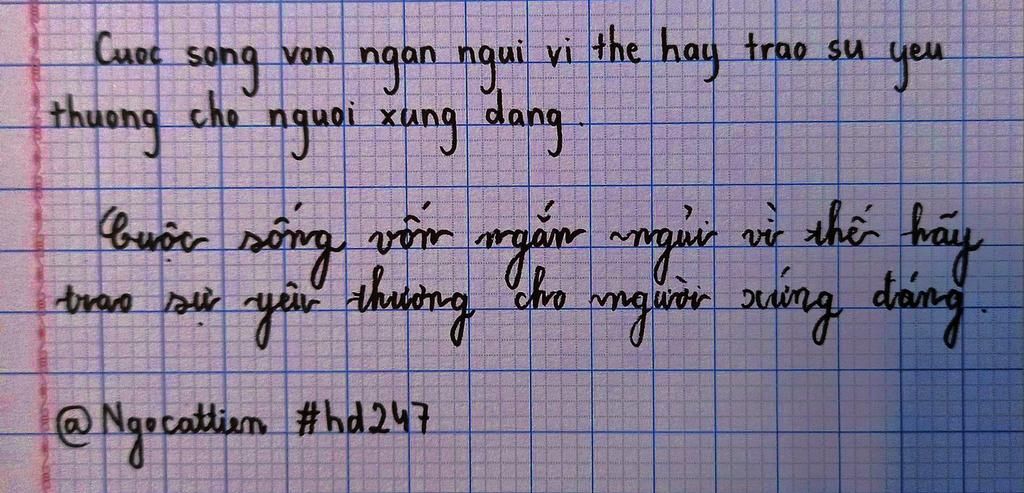 Cuoc song von ngan ngui vi the hay trao su yeu
thuong cho nguoi xung dang.
Cuộc sống vốn ngắn ngủi vì thế hãy
trao sự yêu thương cho người xứng đáng.
@Ngocattien #hd247